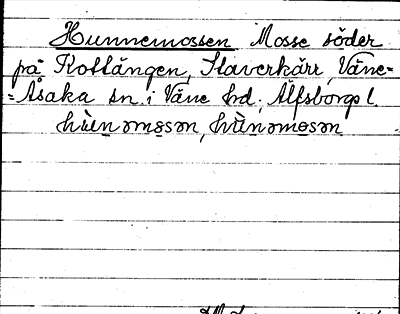 Hunnemossen Mosse söder
på Kottängen, Staverkärr, Väne=
=Åsaka sn. i Väne hrd. Älfsborgs l.
hùnəmosən, hùnəmosən